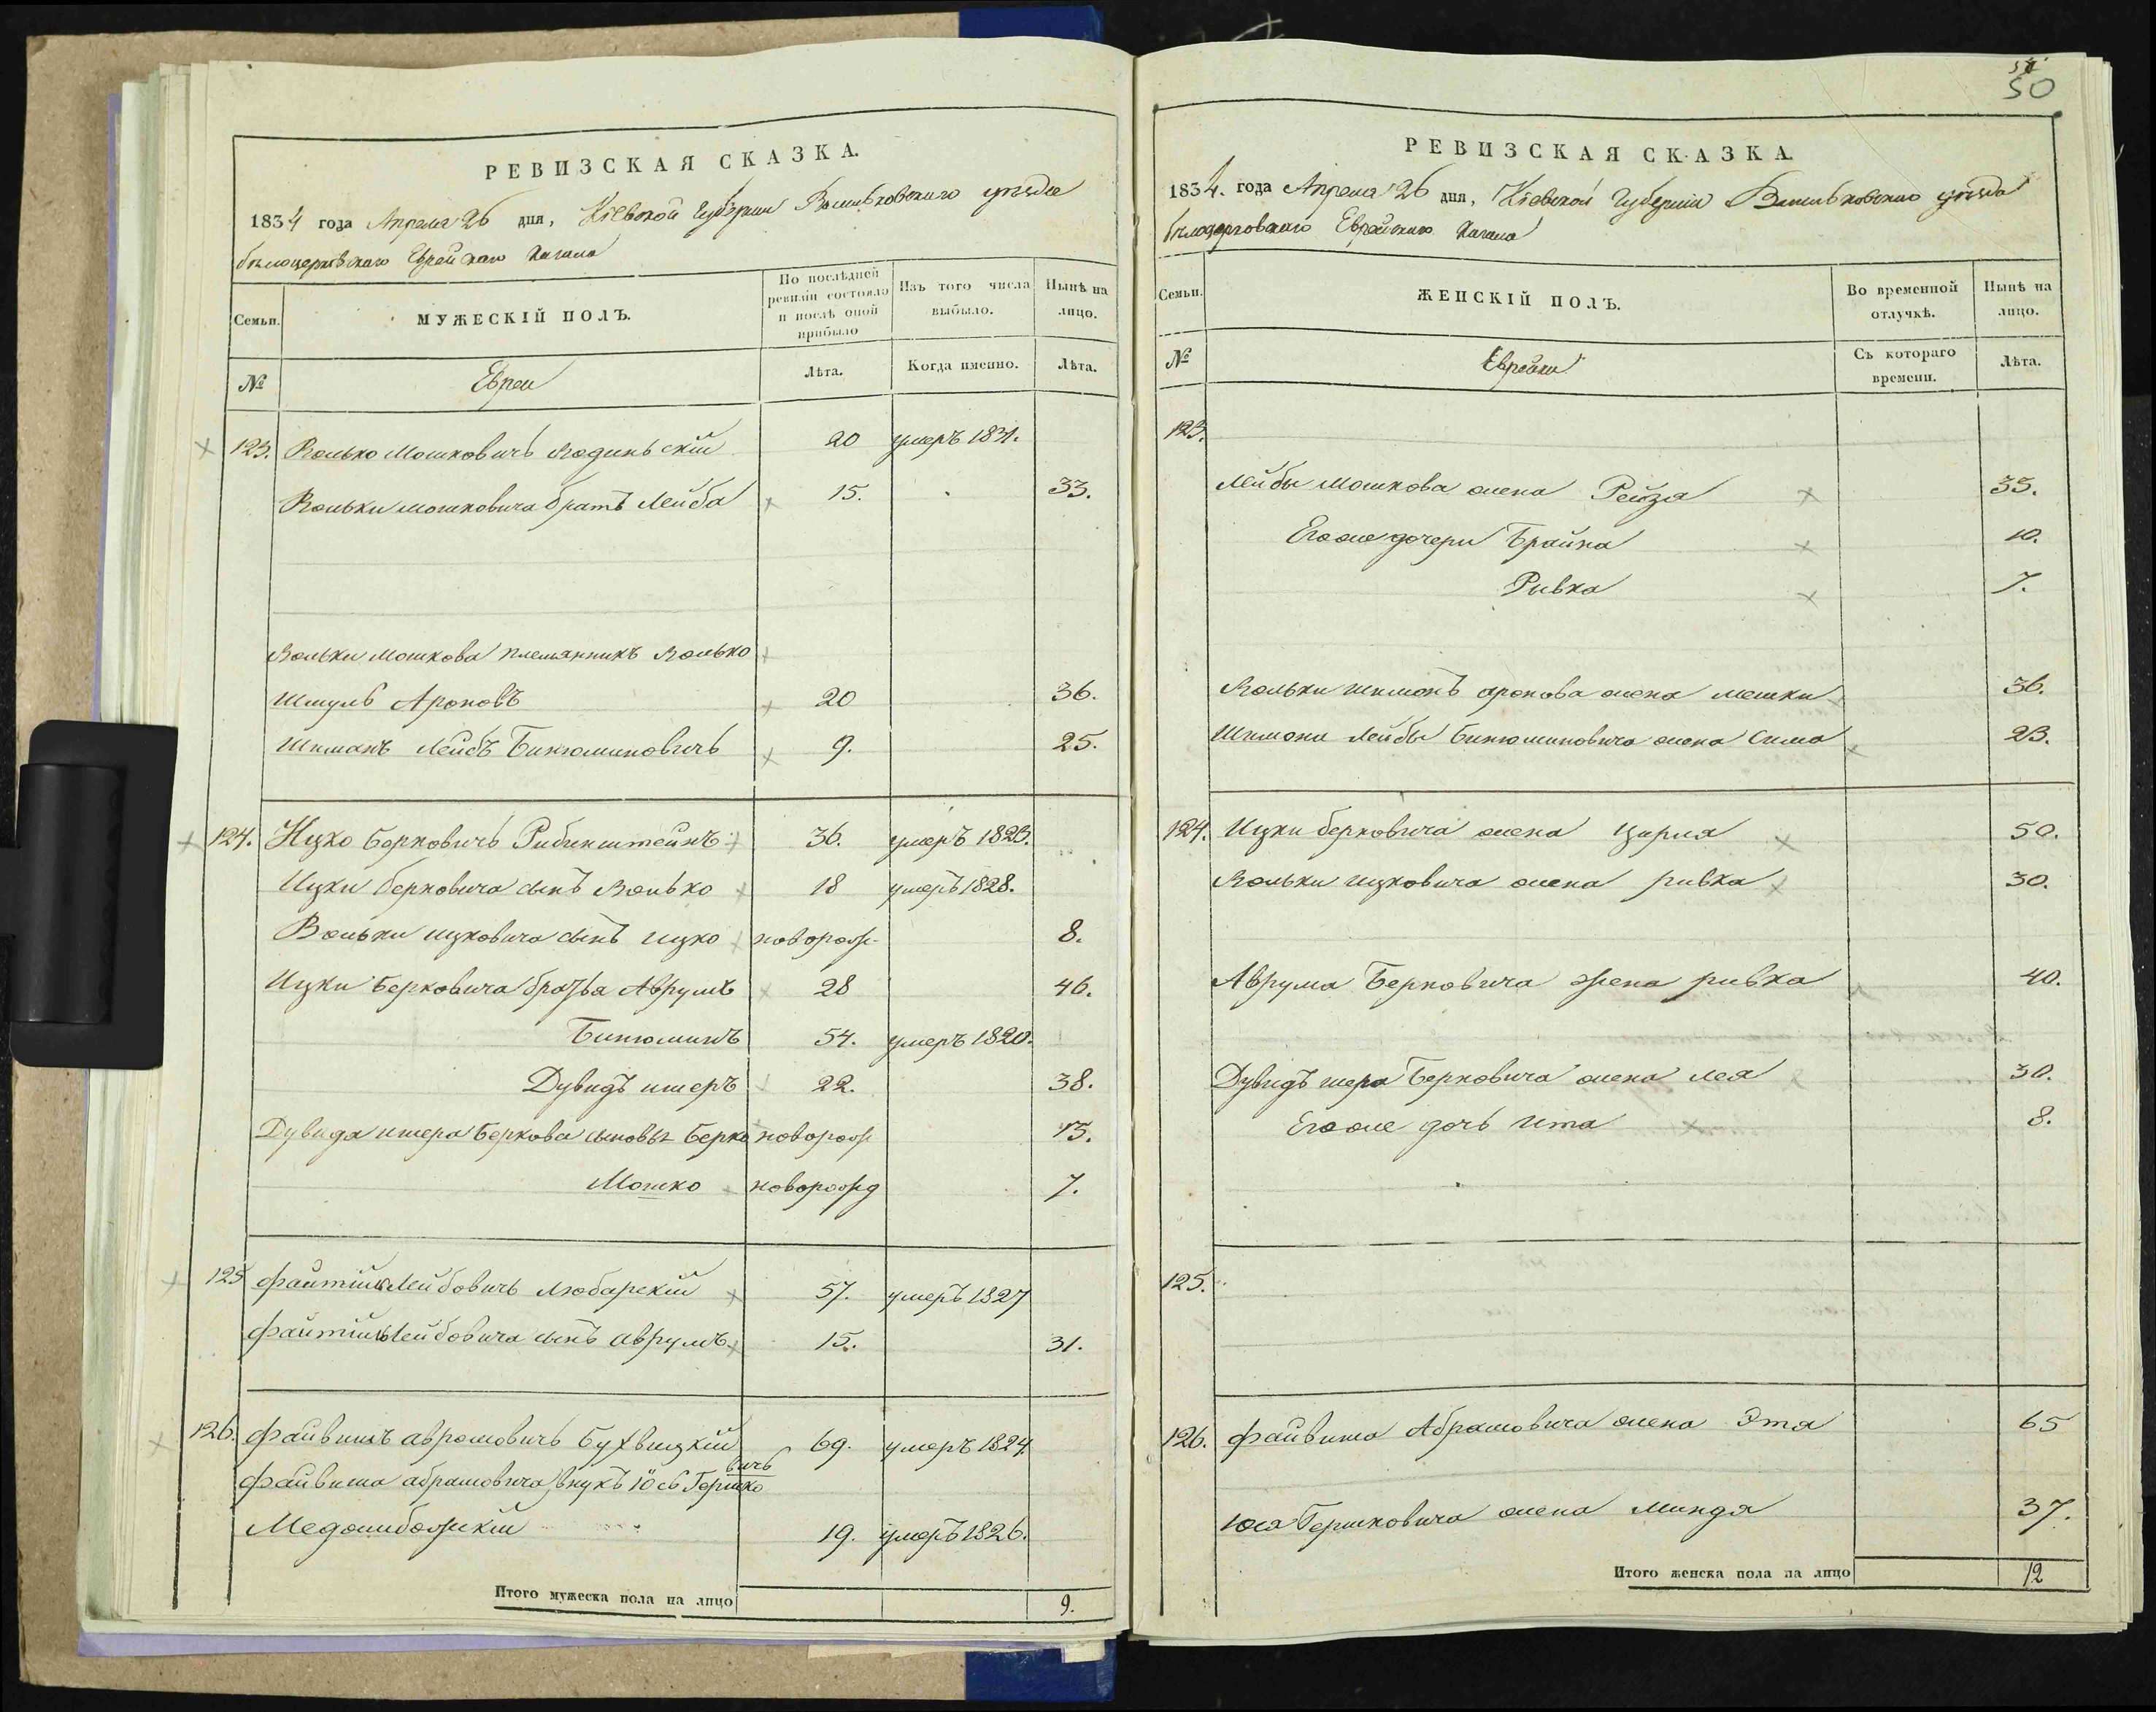 РЕВИЗСКАЯ СКАЗКА.
1834 года Апреля 26 дня, Кіевской Губерніи Васильковскаго уѣзда
бѣлоцерковскаго Еврейскаго Кагала
Семьи.
МУЖЕСКІЙ ПОЛЪ.
По послѣдней ревизіи состояло и послѣ оной прибыло
Изъ того числа выбыло.
Нынѣ на лицо.
№
Евреи
Лѣта.
Когда именно.
Лѣта.
123. Волько Мошковичъ 20 умеръ 1831.
Вольки мошковича братъ Лейба 15. 33.
Вольки Мошкова племянникъ Волько
Шмуль Ароновъ 20 36.
Шимонъ Лейбъ Бинюминовичъ 9. 25.
124. Ицко Берковичъ Рибинштейнъ 36. умеръ 1823.
Ицки берковича сынъ Волько 18 умеръ 1828.
Вольки ицковича сынъ ицко новорож. 8.
Ицки Берковича братья Аврумъ 28 46.
Бинюминъ 54. умеръ 1820.
Дувидъ ишеръ 22. 38.
Дувида ишера Беркова сыновья Берко новорож 13.
Мошко новорожд 7.
125 Лейбовичъ Любарскій 57. умеръ 1827
Лейбовича сынъ аврумъ 15. 31.
126. файвишъ аврамовичъ 69. умеръ 1824
вичъ
файвиша абрамовича внукъ Іось Гершко
Меджибожскій 19. умеръ 1826.
Итого мужеска пола на лицо 9.
51
50
РЕВИЗСКАЯ СКАЗКА.
1834. года Апреля 26 дня, Кіевской Губерніи Васильковскаго уѣзда
бѣлоцерковскаго Еврейскаго Кагала
Семьи.
ЖЕНСКІЙ ПОЛЪ.
Во временной отлучкѣ.
Нынѣ на лицо.
№
Еврейки
Съ котораго времени.
Лѣта.
123.
Лейбы Мошкова жена Рейзя 35.
Егоже дочери Брайна 10.
Ривка 7.
Вольки шмоль аронова жена 36.
Шимона Лейбы Бинюминовича жена Сима 23.
124. Ицки берковича жена Цирля 50.
Вольки ицковича жена ривка 30.
Аврума Берковича жена ривка 40.
Дувидъ шера Берковича жена лея 30.
Егоже дочь Ита 8.
125.
126. файвиша Абрамовича жена Этя 65
Іося Гершковича жена Миндя 37.
Итого женска пола на лицо 12